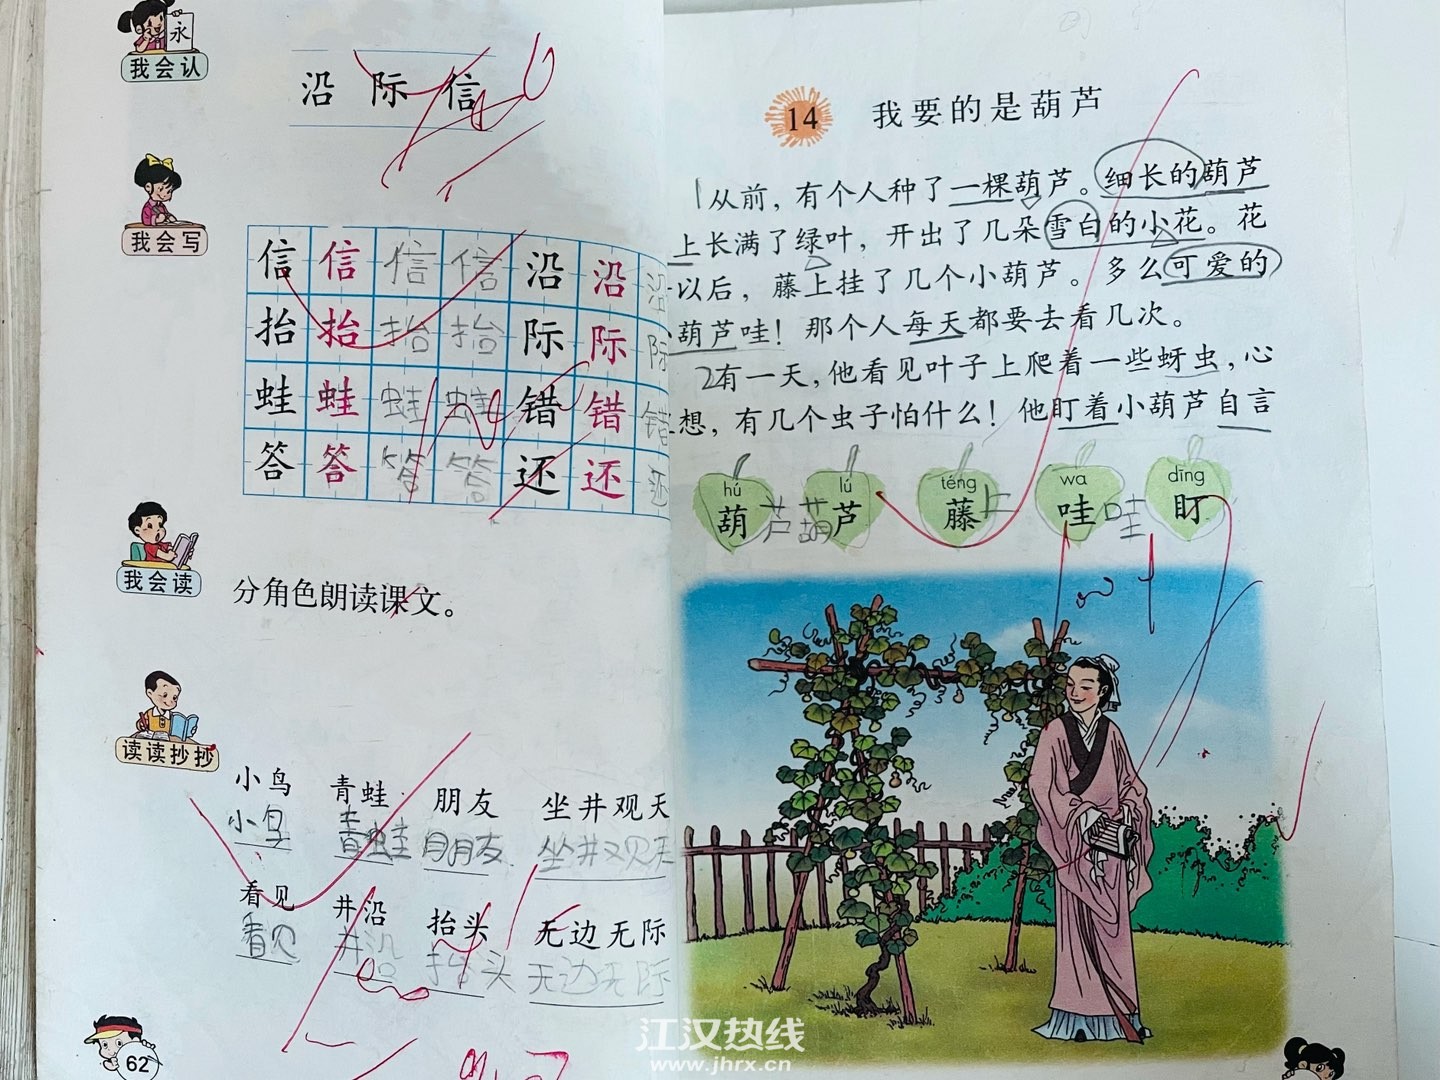 永
我会认
沿 际 信
我会写
信 信 信 信 沿 沿 沿
抬 抬 抬 抬 际 际 际
蛙 蛙 蛙 蛙 错 错 错
答 答 答 答 还 还 还
我会读
分角色朗读课文。
读读抄抄
小鸟 青蛙 朋友 坐井观天
小鸟 青蛙 朋友 坐井观天
看见 井沿 抬头 无边无际
看见 井沿 抬头 无边无际
62
14 我要的是葫芦
1从前，有个人种了一棵葫芦。细长的葫芦
上长满了绿叶，开出了几朵雪白的小花。花
以后，藤上挂了几个小葫芦。多么可爱的
葫芦哇！那个人每天都要去看几次。
2有一天，他看见叶子上爬着一些蚜虫，心
想，有几个虫子怕什么！他盯着小葫芦自言
hú lú téng wa dīng
葫 芦 葫 芦 藤 上 哇 哇 盯
江汉热线
www.jhrx.cn